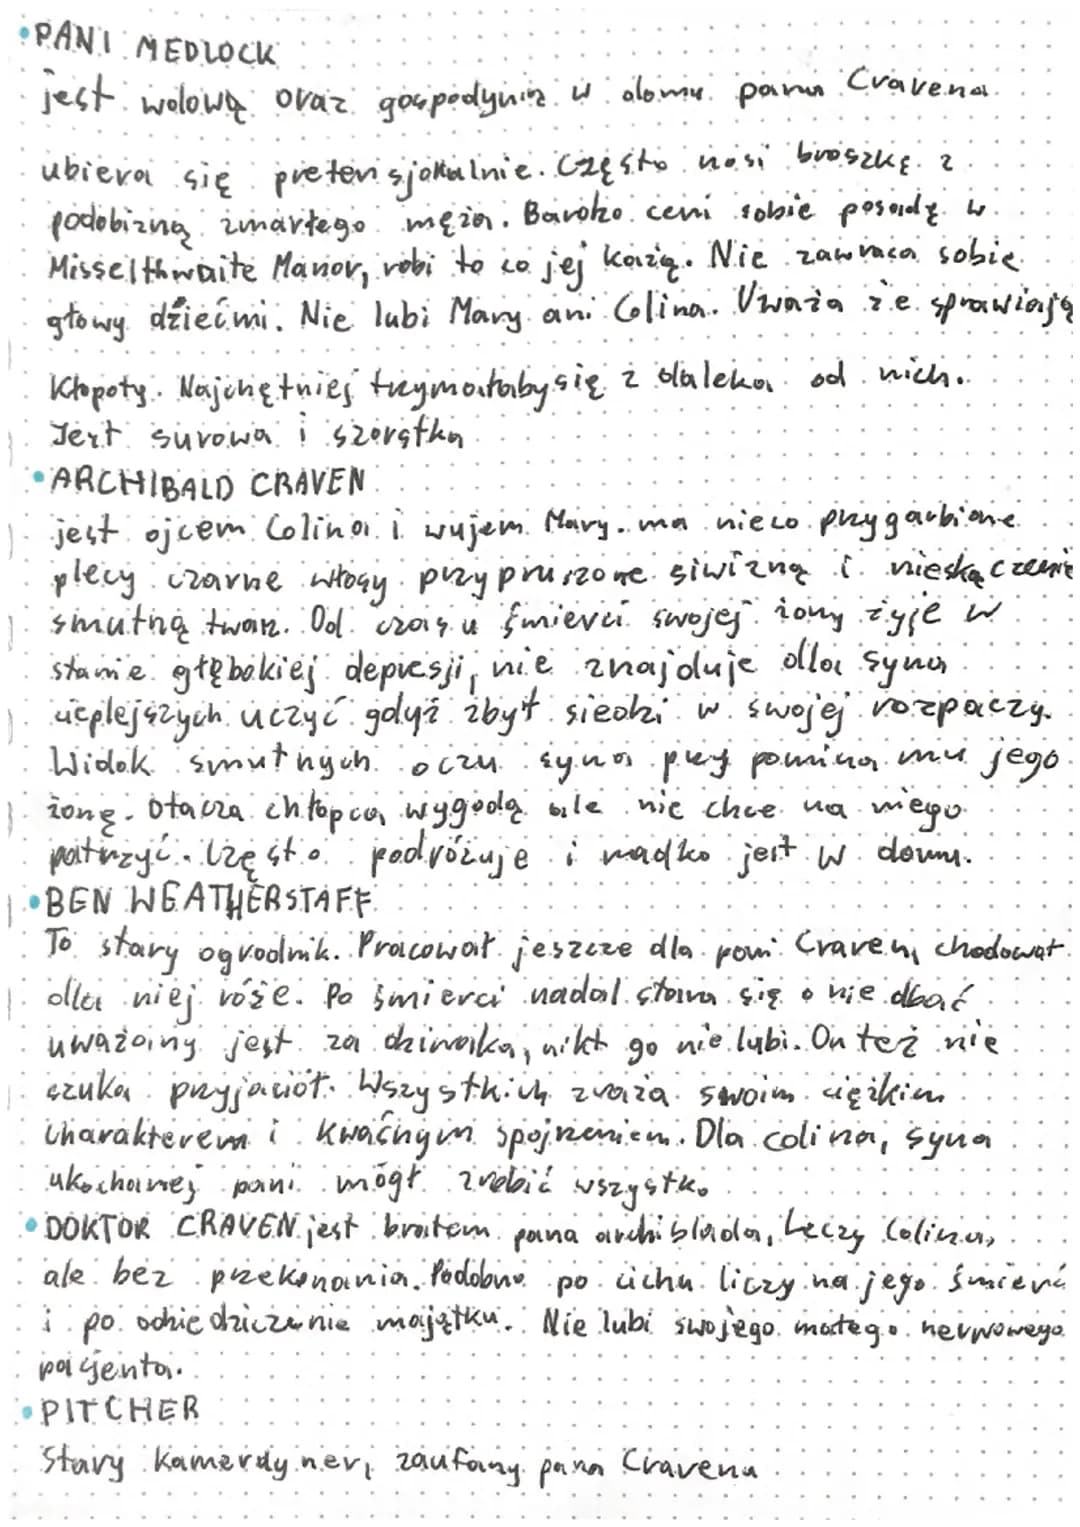 PANI MEDLOCK
jest wdową oraz gospodynią w domu pana Cravena
ubiera się pretensjonalnie. Często nosi broszkę z
podobizną zmarłego męża. Bardzo ceni sobie posadę w
Misselthwaite Manor, robi to co jej każą. Nie zawraca sobie
głowy dziećmi. Nie lubi Mary ani Colina. Uważa że sprawiają
Kłopoty. Najchętniej trzymałaby się z daleka od nich.
Jest surowa i szorstka
ARCHIBALD CRAVEN
jest ojcem Colina i wujem Mary. ma nieco przygarbione
plecy czarne włosy przyprószone siwizną i nieskączenie
smutną twarz. Od czasu śmierci swojej żony żyje w
stanie głębokiej depresji, nie znajduje dla syna
cieplejszych uczyć gdyż zbyt siedzi w swojej rozpaczy.
Widok smutnych oczu syna przypomina mu jego
żonę. Otacza chłopca wygodą ale nie chce na niego
patrzyć. Często podróżuje i rzadko jest w domu.
BEN WEATHERSTAFF
To stary ogrodnik. Pracował jeszcze dla pani Craven, chodował
dla niej róże. Po śmierci nadal stara się o nie dbać
uważany jest za dziwaka, nikt go nie lubi. On też nie
szuka przyjaciół. Wszystkich zraża swoim ciężkim
charakterem i kwaśnym spojrzeniem. Dla colina, syna
ukochanej pani mógł zrobić wszystko
DOKTOR CRAVEN jest bratem pana archiblada, Leczy Colina,
ale bez przekonania. Podobno po cichu liczy na jego śmierć
i po odziedziczenie majątku. Nie lubi swojego małego nerwowego
pacjenta.
PITCHER
Stary Kamerdyner, zaufany pana Cravena